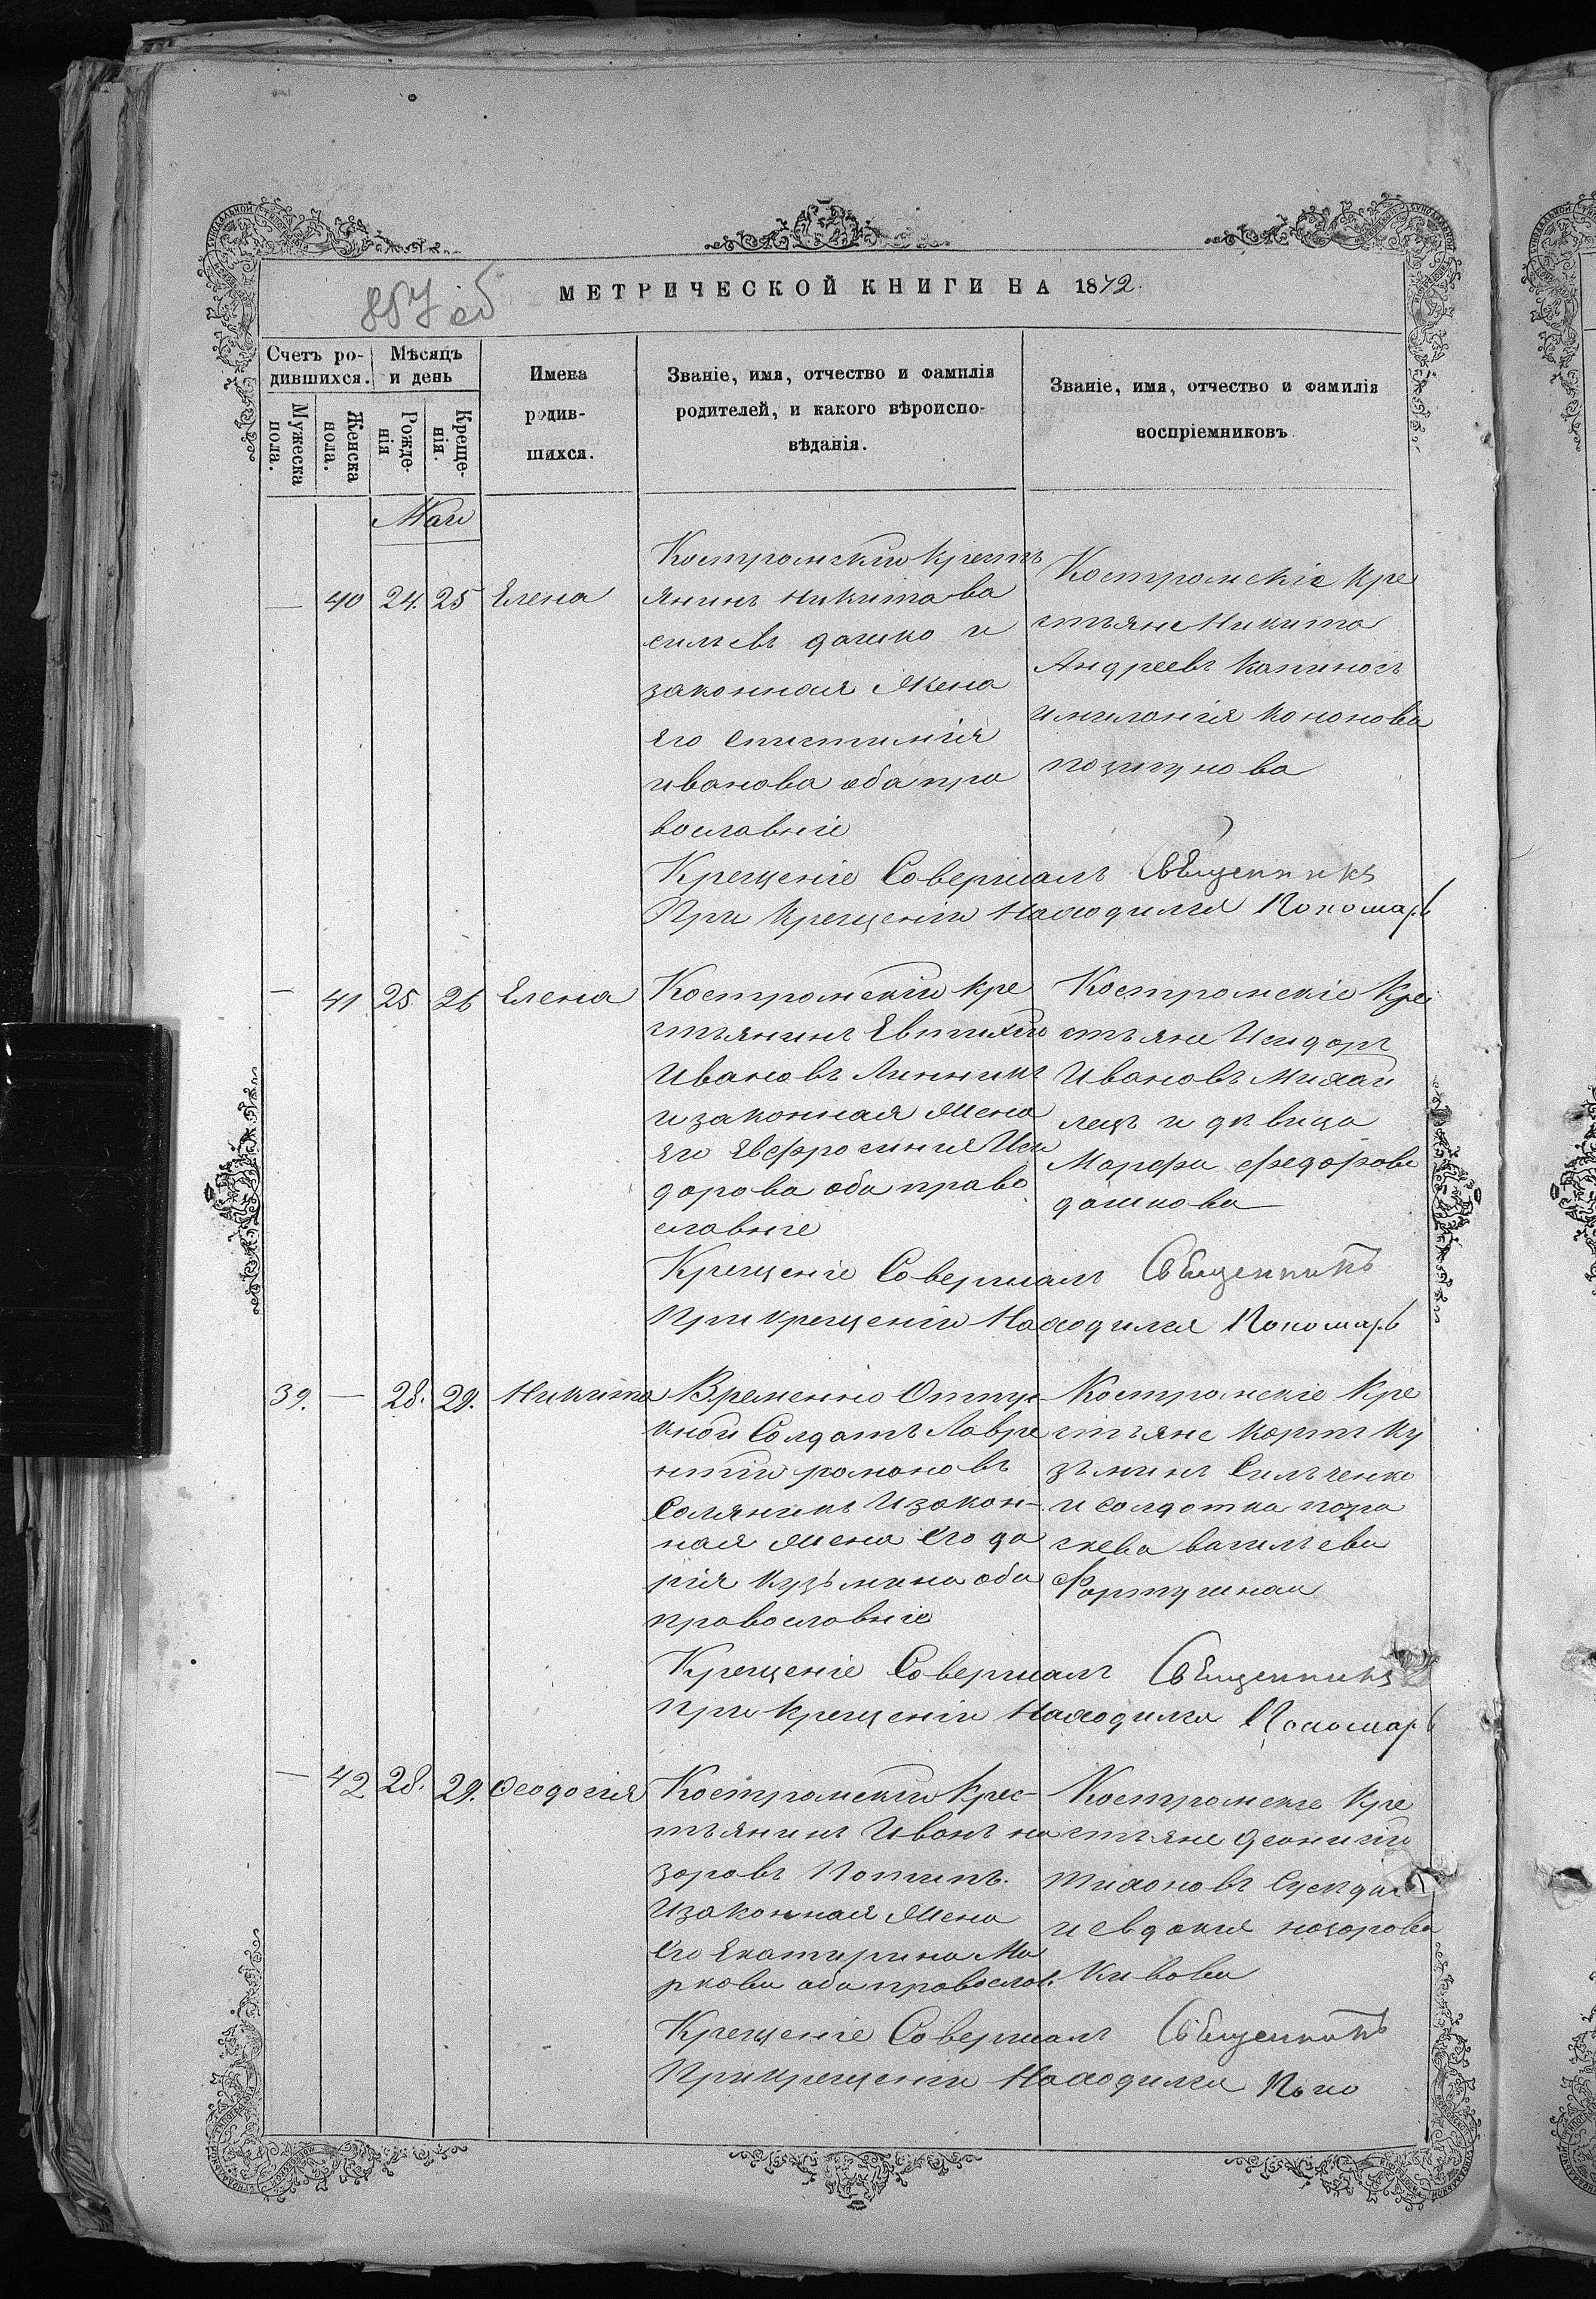 857 об
МЕТРИЧЕСКОЙ КНИГИ НА 1872.
Счетъ ро-
дившихся.
Мужеска пола.
Женска пола.
Мѣсяцъ
и день
Рожде-
нія
Креще-
нія.
Имена
родив-
шихся.
Званіе, имя, отчество и фамилія
родителей, и какого вѣроиспо-
вѣданія.
Званіе, имя, отчество и фамилія
воспріемниковъ.
Маи
— 40 24. 25 Елена
Костромскій крест
янинъ никита ва
сильевъ дашко и
законная жена
его епистимія
иванова оба пра
вославніе
Костромскіе кре
стьяне Никита
Андреевъ капиносъ
имиланія кононова
позигунова
Крещеніе Совершалъ Священникъ
При крещеніи Находился Пономарь
— 41 25 26 Елена
Костромскій кре
стьянинъ Евтихій
Ивановъ Линникъ
и законная жена
его Евфросинія Иси
дорова оба право
славніе
Костромскіе Кре
стьяне Исидоръ
Ивановъ Михай
лецъ и дѣвица
Марфа федорова
дашкова
Крещеніе Совершалъ Священникъ
При крещеніи Находился Пономарь
39. — 28. 29. Никита
Временно Отпу-
кной Солдатъ Лавре
нтій романовъ
Соляникъ Изакон-
ная жена его да
рія кузьмина оба
православніе
Костромскіе Кре
стьяне Карпъ Ку
зьминъ Сильченко
и солдатка пара
скева васильева
Фартушная
Крещеніе Совершалъ Священникъ
При крещеніи Находился Пономарь
— 42 28. 29. Феодосія
Костромскій Крес-
тьянинъ Иванъ на
заровъ Потипъ.
Изаконная жена
его Екатирина Ма
ркова оба православ.
Костромскіе Кре
стьяне Деонисій
тихоновъ
и евдокія назарова
Кивова
Крещеніе Совершалъ Священникъ
При крещеніи Находился Поно